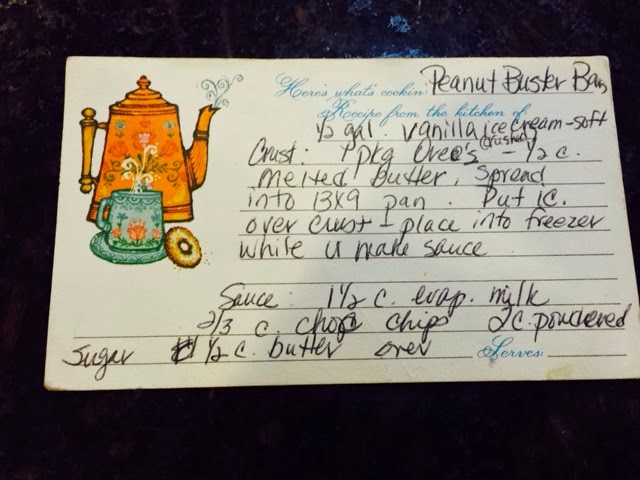 Here's what's cookin: Peanut Buster Bars
Recipe from the kitchen of:
1/2 gal. vanilla ice cream - soft
Crust: 1 pkg Oreo's (crushed) - 1/2 c.
melted butter. Spread
into 13x9 pan. Put ic.
over crust - place into freezer
while u make sauce
Sauce: 1 1/2 c. evap. milk
2/3 c. choc chips 2 c. powdered
Sugar 1/2 c. butter over
Serves: